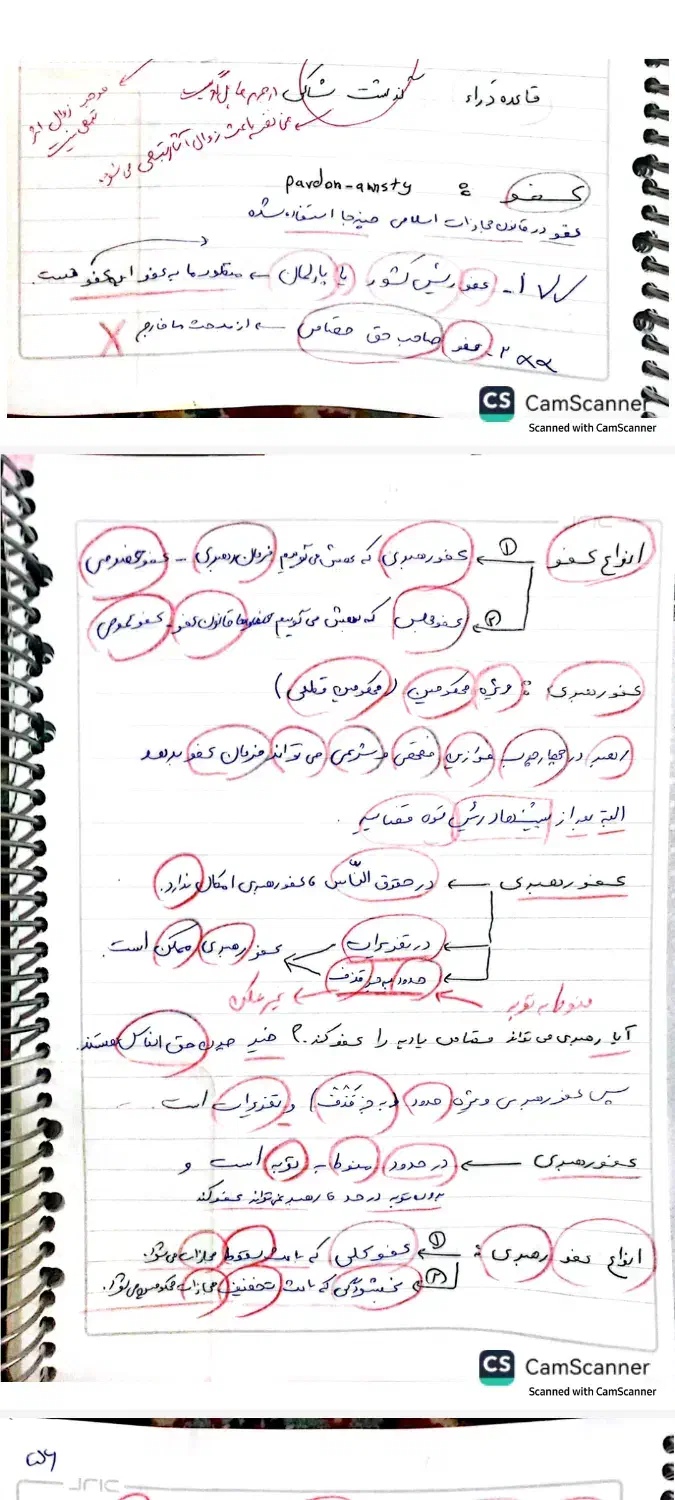 قاعده دَراء گذشت شاکی از جرم قابل گذشت
موجب زوال اثر تبعی نیست
باعث زوال آثار تبعی می شود.
عفو : pardon-amnsty
عفو در قانون مجازات اسلامی چند جا استفاده شده
۱- عفو رئیس کشور یا پارلمان ← منظور ما به عفو این عفو هست.
۲- عفو صاحب حق قصاص ← از بحث ما خارج
CS CamScanner
Scanned with CamScanner
انواع عفو ① عفو رهبری که بهش می گوییم فرمان رهبری - عفو خصوصی
② عفو مجلس که بهش می گوییم قانون عفو - عفو عمومی
عفو رهبری : ویژه محکومین (محکومین قطعی)
رهبر در چهارچوب موازین فقهی و شرعی می تواند فرمان عفو بدهد
البته بعد از پیشنهاد رئیس قوه قضاییه.
عفو رهبری ← در حقوق النّاس عفو رهبری امکان ندارد.
در تعزیرات عفو رهبری ممکن است.
حدود به جز قذف
منوط به توبه غیر ممکن
آیا رهبری می تواند قصاص یا دیه را عفو کند؟ خیر چون حق الناس هستند.
پس عفو رهبری ویژه حدود (به جز قذف) و تعزیرات است.
عفو رهبری ← در حدود منوط به توبه است و
بدون توبه در حد رهبر نمی تواند عفو کند
انواع عفو رهبری : ① عفو کلی که باعث سقوط مجازات می شود.
② بخشودگی که باعث تخفیف مجازات محکومین می شود.
CS CamScanner
Scanned with CamScanner